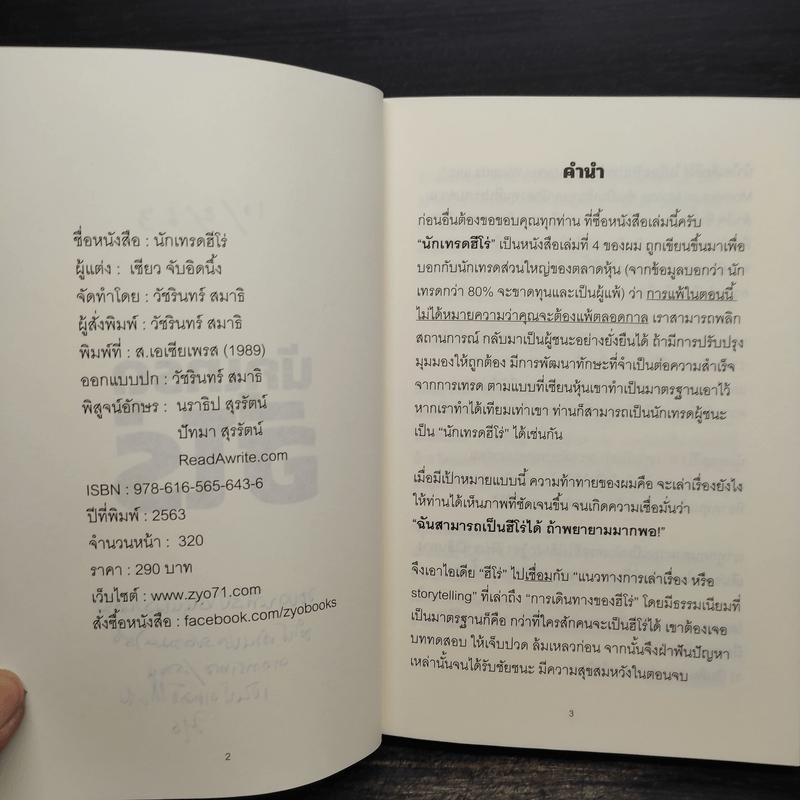 ชื่อหนังสือ : นักเทรดฮีโร่
ผู้แต่ง : เซียว จับอิดนึ้ง
จัดทำโดย : วัชรินทร์ สมาธิ
ผู้สั่งพิมพ์ : วัชรินทร์ สมาธิ
พิมพ์ที่ : ส.เอเซียเพรส (1989)
ออกแบบปก : วัชรินทร์ สมาธิ
พิสูจน์อักษร : นราธิป สุรรัตน์
ปัทมา สุรรัตน์
ReadAwrite.com
ISBN : 978-616-565-643-6
ปีที่พิมพ์ : 2563
จำนวนหน้า : 320
ราคา : 290 บาท
เว็บไซต์ : www.zyo71.com
สั่งซื้อหนังสือ : facebook.com/zyobooks
2
คำนำ
ก่อนอื่นต้องขอขอบคุณทุกท่าน ที่ซื้อหนังสือเล่มนี้ครับ
“นักเทรดฮีโร่” เป็นหนังสือเล่มที่ 4 ของผม ถูกเขียนขึ้นมาเพื่อ
บอกกับนักเทรดส่วนใหญ่ของตลาดหุ้น (จากข้อมูลบอกว่า นัก
เทรดกว่า 80% จะขาดทุนและเป็นผู้แพ้) ว่า การแพ้ในตอนนี้
ไม่ได้หมายความว่าคุณจะต้องแพ้ตลอดกาล เราสามารถพลิก
สถานการณ์ กลับมาเป็นผู้ชนะอย่างยั่งยืนได้ ถ้ามีการปรับปรุง
มุมมองให้ถูกต้อง มีการพัฒนาทักษะที่จำเป็นต่อความสำเร็จ
จากการเทรด ตามแบบที่เซียนหุ้นเขาทำเป็นมาตรฐานเอาไว้
หากเราทำได้เทียมเท่าเขา ท่านก็สามารถเป็นนักเทรดผู้ชนะ
เป็น “นักเทรดฮีโร่” ได้เช่นกัน
เมื่อมีเป้าหมายแบบนี้ ความท้าทายของผมคือ จะเล่าเรื่องยังไง
ให้ท่านได้เห็นภาพที่ชัดเจนขึ้น จนเกิดความเชื่อมั่นว่า
“ฉันสามารถเป็นฮีโร่ได้ ถ้าพยายามมากพอ!”
จึงเอาไอเดีย “ฮีโร่” ไปเชื่อมกับ “แนวทางการเล่าเรื่อง หรือ
storytelling” ที่เล่าถึง “การเดินทางของฮีโร่” โดยมีธรรมเนียมที่
เป็นมาตรฐานก็คือ กว่าที่ใครสักคนจะเป็นฮีโร่ได้ เขาต้องเจอ
บททดสอบ ให้เจ็บปวด ล้มเหลวก่อน จากนั้นจึงฝ่าฟันปัญหา
เหล่านั้นจนได้รับชัยชนะ มีความสุขสมหวังในตอนจบ
3